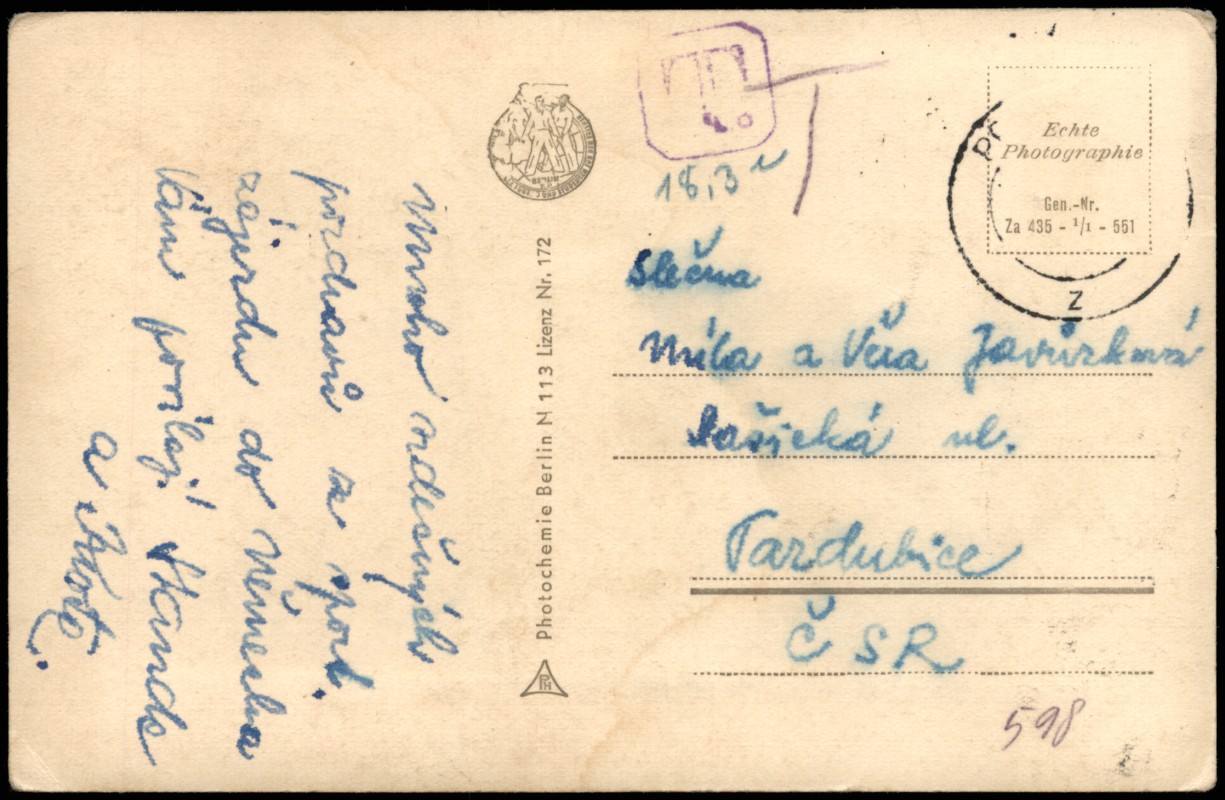 Mnoho srdečných
pozdravů ze sport.
zájezdu do Německa
Vám posílají Standa
a
Photochemie Berlin N 113 Lizenz Nr. 172
PH
T.
18,3
Echte
Photographie
Gen.-Nr.
Za 435 - 1/1 - 551
Z
Slečna
Míla a Věra
ul.
Pardubice
ČSR
598